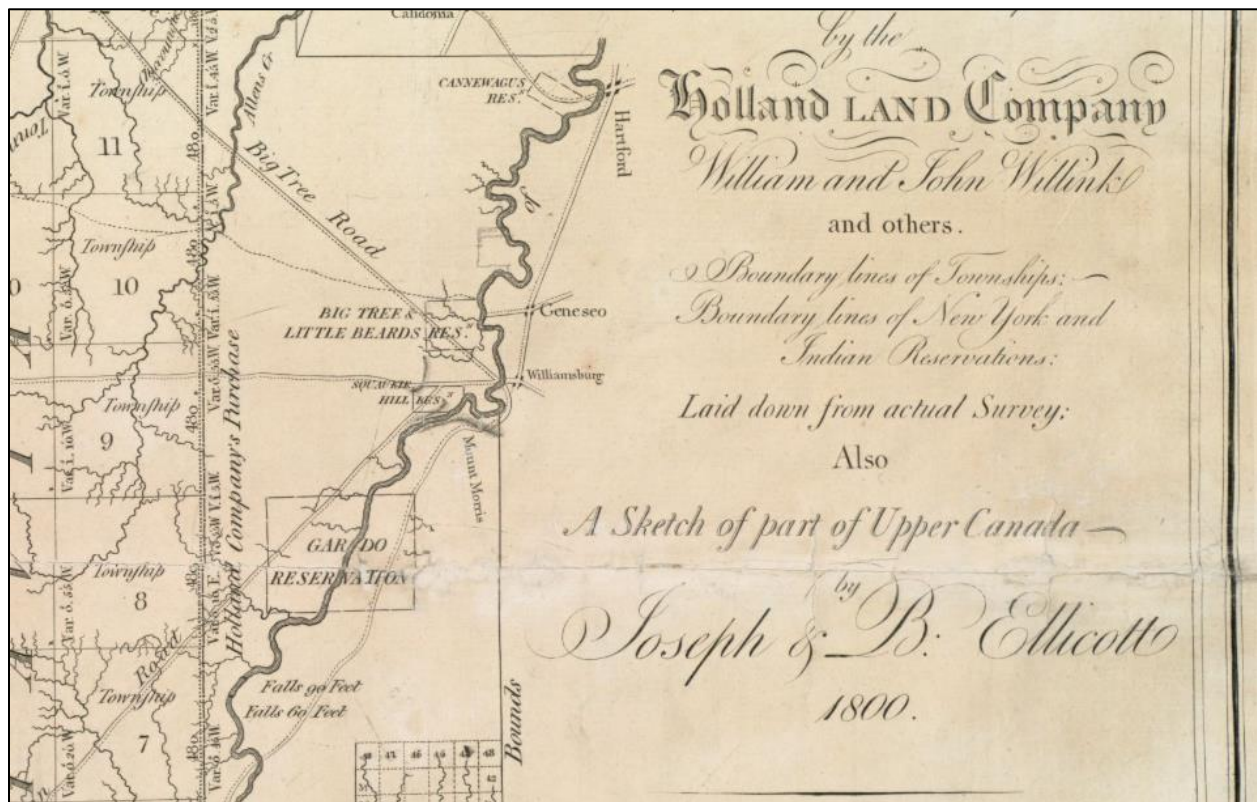 Calidonia
CANNEWAGUS
RES.ⁿ
Hartford
Allens Cr.
Big Tree Road
Township
11
Township
10
Township
9
Township
8
Township
7
Road
Holland Company's Purchase
BIG TREE &
LITTLE BEARDS RES.ⁿ
Geneseo
SQUAUKIE
HILL RES.ⁿ
Williamsburg
Mount Morris
GARDO
RESERVATION
Falls 90 Feet
Falls 60 Feet
Bounds
by the
Holland LAND Company
William and John Willink
and others.
Boundary lines of Townships:
Boundary lines of New York and
Indian Reservations:
Laid down from actual Survey:
Also
A Sketch of part of Upper Canada
by
Joseph & B: Ellicott
1800.